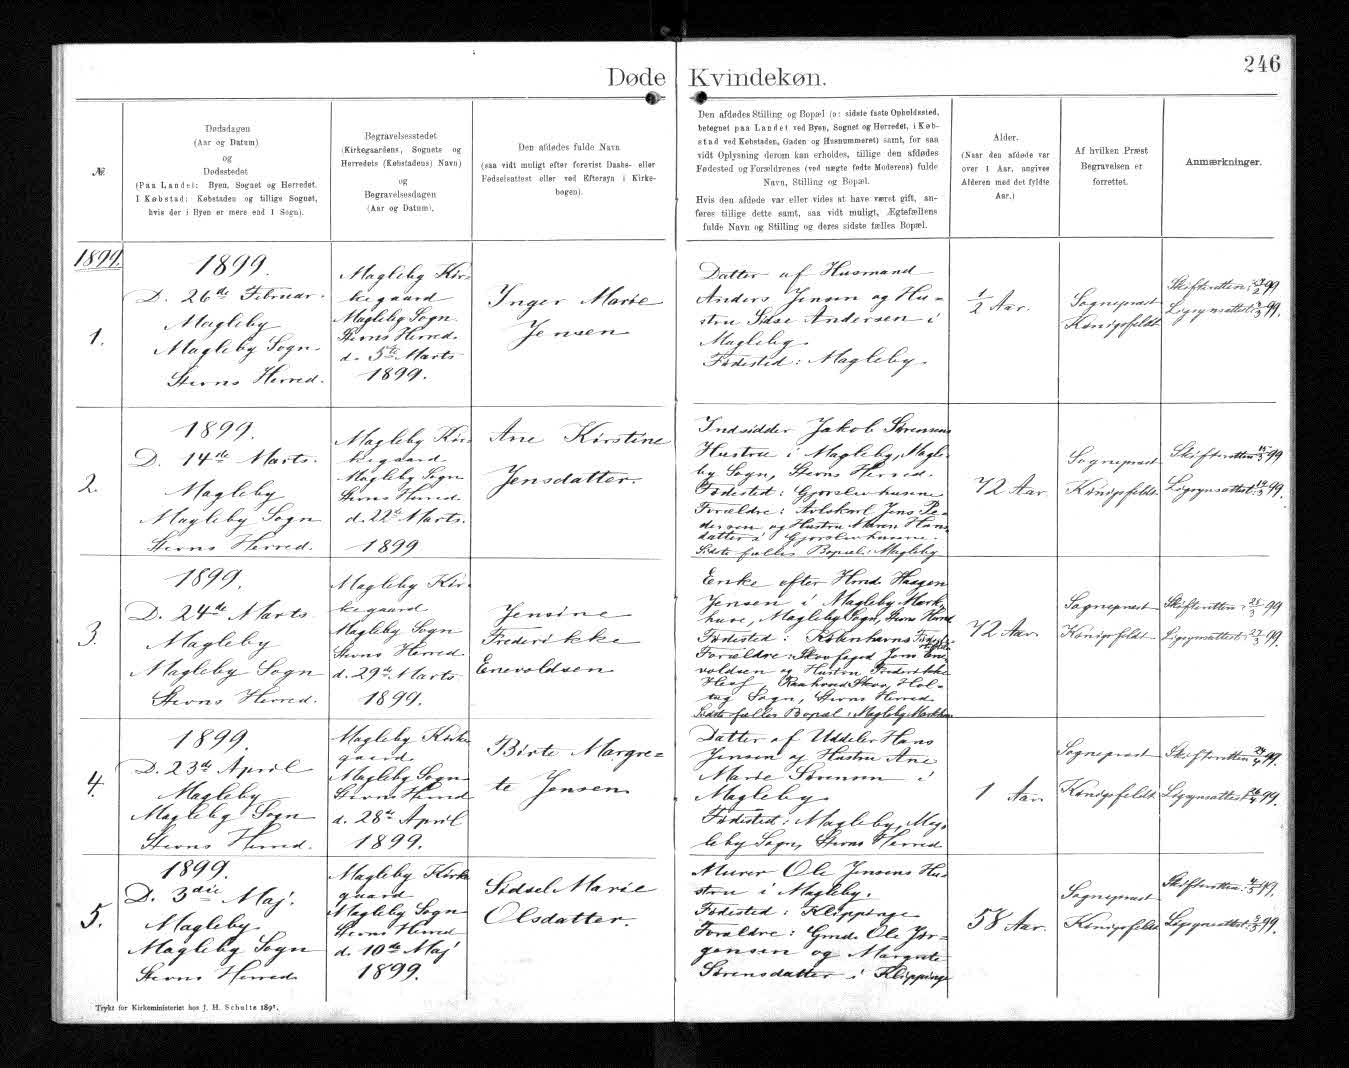 246
Døde Kvindekøn.
№
Dødsdagen
(Aar og Datum)
og
Dødsstedet
(Paa Landet: Byen, Sognet og Herredet.
I Købstad: Købstaden og tillige Sognet,
hvis der i Byen er mere end 1 Sogn).
Begravelsesstedet
(Kirkegaardens, Sognets og
Herredets (Købstadens) Navn)
og
Begravelsesdagen
(Aar og Datum).
Den afdødes fulde Navn
(saa vidt muligt efter forevist Daabs- eller
Fødselsattest eller ved Eftersyn i Kirke-
bogen).
Den afdødes Stilling og Bopæl (ɔ: sidste faste Opholdssted,
betegnet paa Landet ved Byen, Sognet og Herredet, i Køb-
stad ved Købstaden, Gaden og Husnummeret) samt, for saa
vidt Oplysning derom kan erholdes, tillige den afdødes
Fødested og Forældrenes (ved uægte fødte Moderens) fulde
Navn, Stilling og Bopæl.
Hvis den afdøde var eller vides at have været gift, an-
føres tillige dette samt, saa vidt muligt, Ægtefællens
fulde Navn og Stilling og deres sidste fælles Bopæl.
Alder.
(Naar den afdøde var
over 1 Aar, angives
Alderen med det fyldte
Aar.)
Af hvilken Præst
Begravelsen er
forrettet.
Anmærkninger.
1899.
1.
1899.
D. 26de Februar.
Magleby
Magleby Sogn.
Stevns Herred.
Magleby Kir-
kegaard
Magleby Sogn.
Stevns Herred.
d. 5te Marts
1899.
Inger Marie
Jensen
Datter af Husmand
Anders Jensen og Hu-
stru Sidse Andersen i
Magleby.
Fødested: Magleby.
1/2 Aar.
Sognepræst
Königsfeldt
Skifteretten: 27/2 99
Ligsynsattest: 2/3 99.
2.
1899.
D. 14de Marts.
Magleby
Magleby Sogn
Stevns Herred.
Magleby Kir-
kegaard
Magleby Sogn
Stevns Herred
d. 22de Marts.
1899
Ane Kirstine
Jensdatter.
Indsidder Jakob Sørensens
Hustru i Magleby, Magle-
by Sogn, Stevns Herred.
Fødested: Gjorslevhusene
Forældre: Avlskarl Jens Pe-
dersen og Hustru Maren Hans
datter i Gjorslevhusene.
Sidste fælles Bopæl: Magleby
72 Aar.
Sognepræst
Königsfeldt.
Skifteretten 15/3 99
Ligsynsattest: 14/3 99.
3.
1899.
D. 24de Marts
Magleby
Magleby Sogn
Stevns Herred.
Magleby Kir-
kegaard
Magleby Sogn
Stevns Herred
d. 29de Marts
1899.
Jensine
Frederikke
Enevoldsen
Enke efter Hmd Hasgen
Jensen i Magleby Mark-
huse, Magleby Sogn, Stevns Herred
Fødested: Københavns Fødsels-
stiftelse
Forældre: Skovfoged Jens Ene-
voldsen og Hustru Frederikke
Skov, Hol-
tug Sogn, Stevns Herred
Sidste fælles Bopæl: Magleby Markhuse
72 Aar.
Sognepræst
Königsfeldt
Skifteretten: 25/3 99
Ligsynsattest: 27/3 99.
4.
1899.
D. 23de April
Magleby
Magleby Sogn
Stevns Herred.
Magleby Kirke
gaard
Magleby Sogn
Stevns Herred
d. 28de April
1899.
Birte Margre-
te Jensen
Datter af Uddeler Hans
Jensen og Hustru Ane
Marie Sørensen i
Magleby
Fødested: Magleby, Mag-
leby Sogn, Stevns Herred
1 Aar.
Sognepræst
Königsfeldt
Skifteretten 24/4 99.
Ligsynsattest 26/4 99.
5.
1899.
D. 3die Maj.
Magleby
Magleby Sogn
Stevns Herred.
Magleby Kirke
gaard
Magleby Sogn
Stevns Herred
d. 10de Maj
1899.
Sidsel Marie
Olsdatter.
Murer Ole Jensens Hu-
stru i Magleby.
Fødested: Klippinge
Forældre: Gmd. Ole Jør-
gensen og Margrete
Sørensdatter i Klippinge
58 Aar.
Sognepræst
Königsfeldt
Skifteretten: 4/5 99.
Ligsynsattest: 5/5 99.
Trykt for Kirkeministeriet hos J. H. Schultz